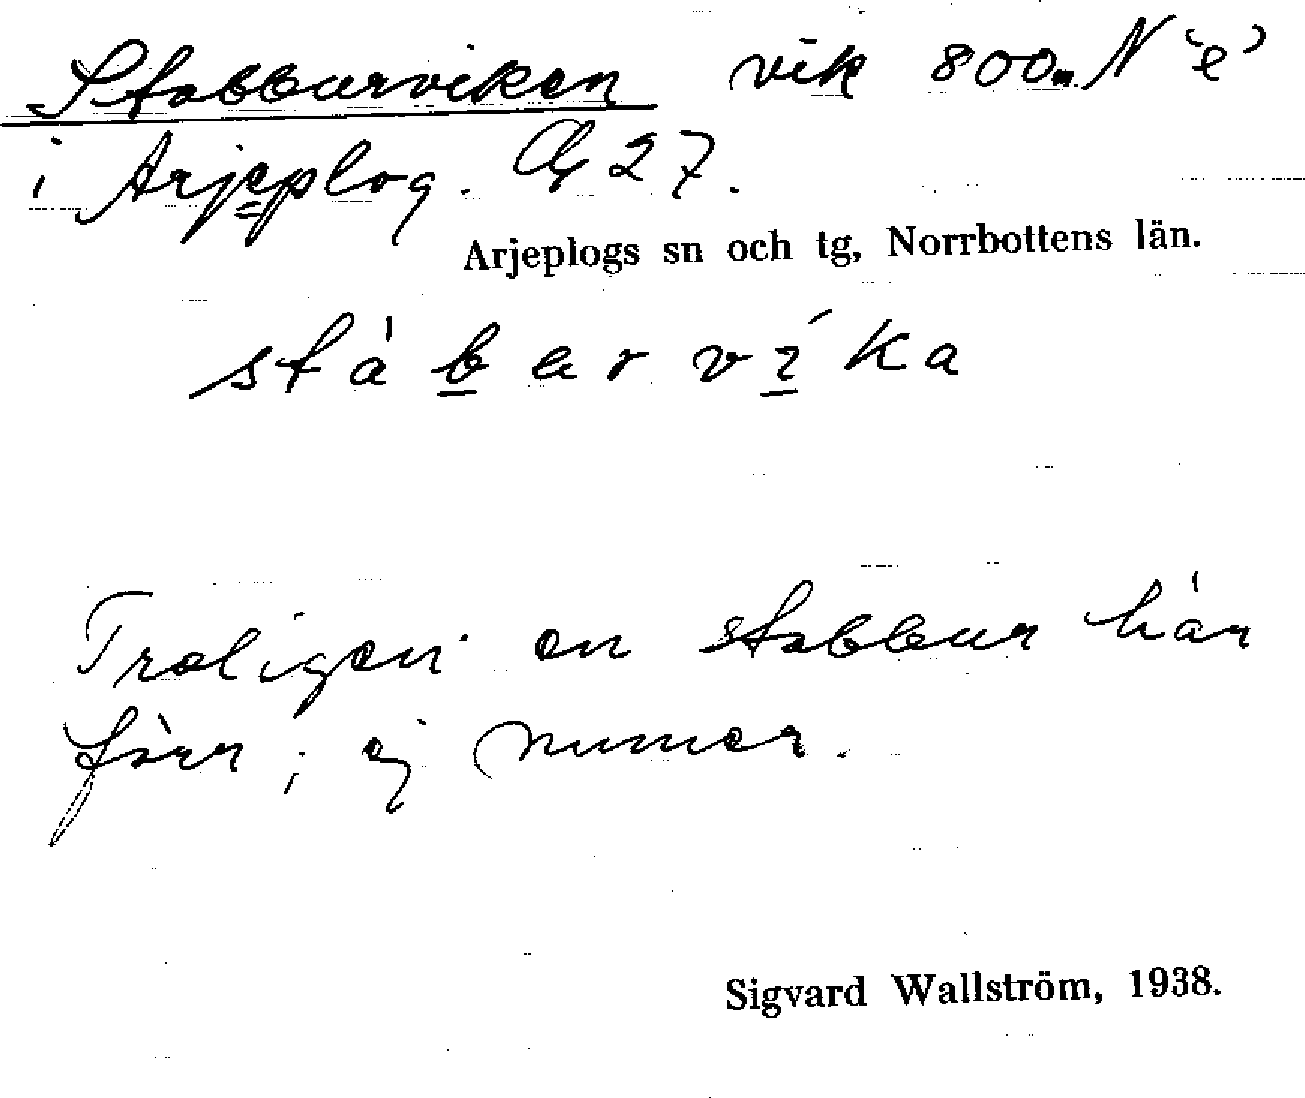 Stabburviken vik 800 m N 'e'
i Arjeplog. Eg 27.
Arjeplogs sn och tg, Norrbottens län.
stàbervíka
Troligen en stabbur här
förr; ej numer.
Sigvard Wallström, 1938.